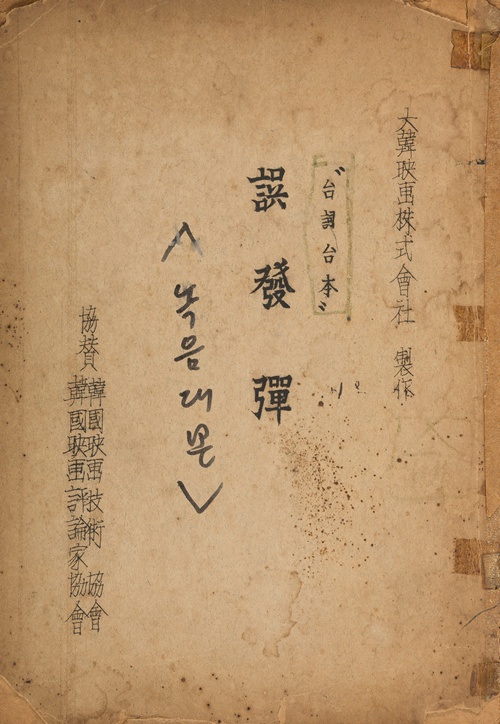 大韓映画株式會社 製作
"台詞台本"
誤發彈
<녹음대본>
協賛
韓國映画技術協會
韓國映画評論家協會